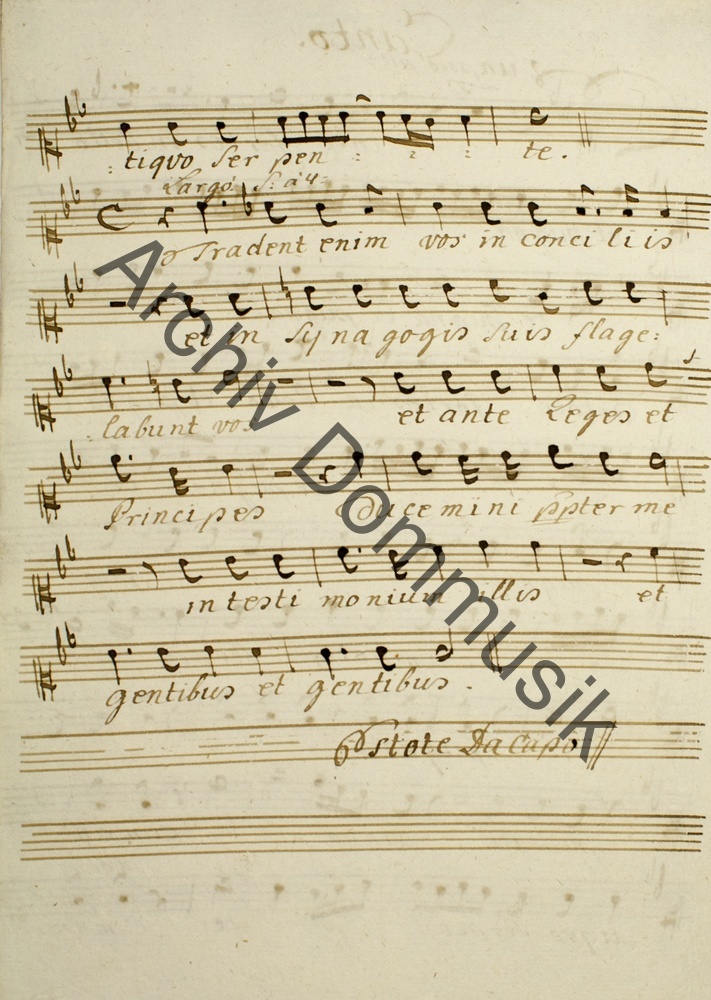 Canto.
: tiquo ser pen : : : te.
Largo. S: à 4:
Tradent enim vos in conci li is
et in sy na gogis suis flage:
: labunt vos et ante Reges et
Principes duce mini ppter me
in testi monium illis et
gentibus et gentibus.
Estote Da Capo
Archiv Dommusik